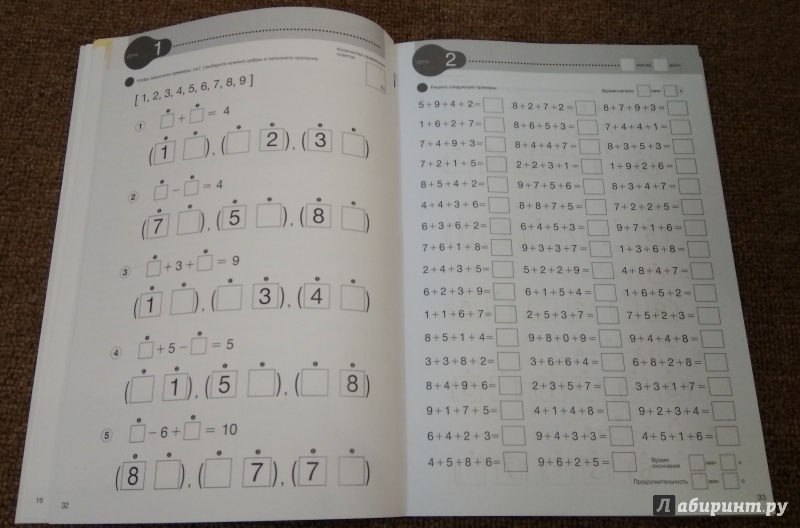 день 1
Чтобы закончить примеры, из [ ] выберите нужные цифры и заполните пропуски.
Количество правильных ответов
[ 1, 2, 3, 4, 5, 6, 7, 8, 9 ]
1 □ + □ = 4
(1 □), (□ 2), (3 □)
2 □ − □ = 4
(7 □), (5 □), (8 □)
3 □ + 3 + □ = 9
(1 □), (□ 3), (4 □)
4 □ + 5 − □ = 5
(□ 1), (5 □), (□ 8)
5 □ − 6 + □ = 10
(8 □), (□ 7), (7 □)
16
32
день 2
месяц день
Решите следующие примеры.
Время начала мин с
5+9+4+2= 8+2+7+2= 8+7+9+3=
1+6+2+7= 8+6+5+3= 7+4+4+1=
7+4+9+3= 8+4+4+7= 8+3+5+3=
7+2+1+5= 2+2+3+1= 1+9+2+6=
8+5+4+2= 9+7+5+6= 8+3+4+7=
4+4+3+6= 8+8+7+5= 7+2+2+5=
6+3+6+2= 6+4+5+3= 9+7+1+6=
7+6+1+8= 9+3+3+7= 1+3+6+8=
2+4+3+5= 5+2+2+9= 4+8+4+7=
6+2+3+9= 6+1+5+4= 1+6+5+2=
1+1+6+7= 2+5+3+7= 7+5+2+3=
8+5+1+4= 9+8+0+9= 9+4+4+8=
3+3+8+2= 3+6+6+4= 6+8+2+8=
8+4+9+6= 2+3+5+7= 3+3+1+7=
9+1+7+5= 4+1+4+8= 9+2+3+4=
6+4+2+3= 9+4+3+3= 4+5+1+6=
4+5+8+6= 9+6+2+5=
Время окончания мин с
Продолжительность мин с
33
Лабиринт.ру